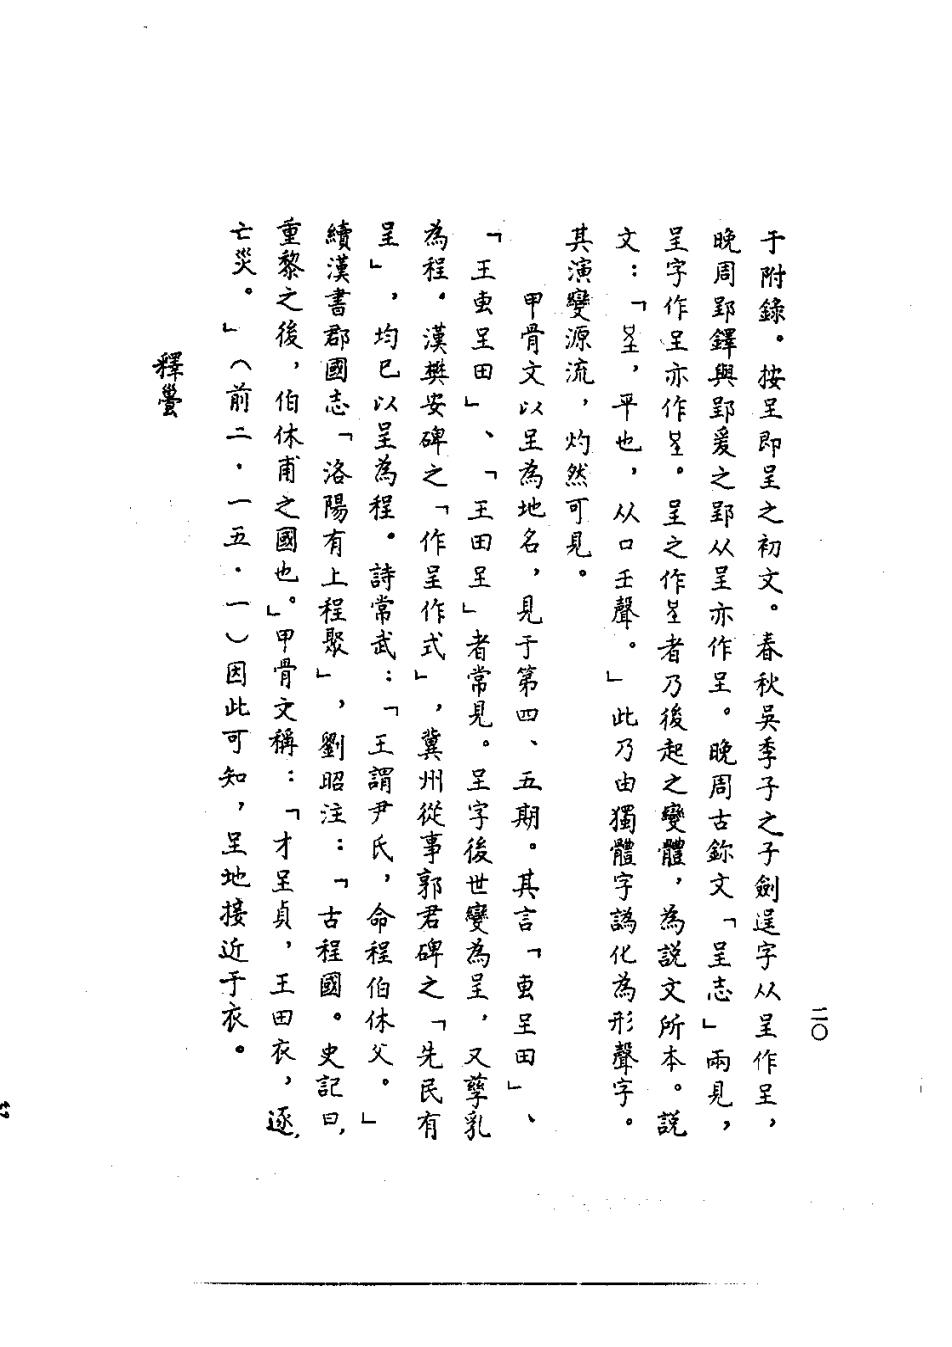 于附錄。按呈即呈之初文。春秋吳季子之子劍逞字从呈作呈，
晚周郢鐸與郢爰之郢从呈亦作呈。晚周古鉨文「呈志」兩見，
呈字作呈亦作𡈼。呈之作𡈼者乃後起之變體，為說文所本。說
文：「呈，平也，从口壬聲。」此乃由獨體字譌化為形聲字。
其演變源流，灼然可見。
甲骨文以呈為地名，見于第四、五期。其言「叀呈田」、
「王叀呈田」、「王田呈」者常見。呈字後世變為呈，又孳乳
為程。漢樊安碑之「作呈作式」，冀州從事郭君碑之「先民有
呈」，均已以呈為程。詩常武：「王謂尹氏，命程伯休父。」
續漢書郡國志「洛陽有上程聚」，劉昭注：「古程國。史記曰，
重黎之後，伯休甫之國也。」甲骨文稱：「才呈貞，王田衣，逐，
亡災。」（前二·一五·一）因此可知，呈地接近于衣。
釋
二〇